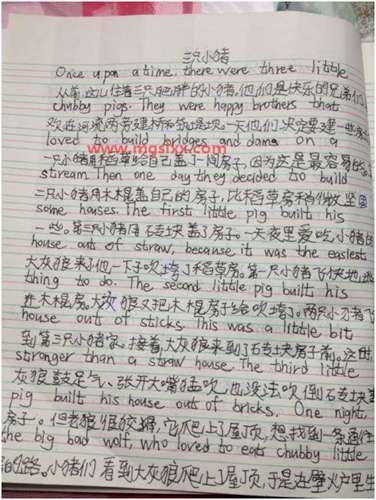 三只小猪
Once upon a time, there were three little
从前,这儿住着三只肥胖的小猪,他们是快乐的兄弟们
chubby pigs. They were happy brothers that
欢在河流两旁建桥和 一天他们决定要建一些房
loved to build bridges and dams on a
www.mgsixx.com
一只小猪用稻草给自己盖了一间房子,因为这是最容易的
stream Then one day they decided to build
二只小猪用木棍盖自己的房子,比稻草房稍微坚固
some houses. The first little pig built his
一些。第三只小猪用石专块盖了房子。一天夜里爱吃小猪的
house out of straw, because it was the easiest
大灰狼来了他一下子吹垮了稻草房。第一只小猪飞快地逃
thing to do. The second little pig built his
进木棍房。大灰狼又把木棍房子给吹垮了。两只小猪飞
house out of sticks. This was a little bit
到第三只小猪家。接着大灰狼来到了石专块房子前。这
stronger than a staw house. The third litt
灰狼鼓足气、张开大嘴猛吹,也没法吹倒石专块
pig built his house out of bricks. One night,
房子。但老狼很狡猾,它爬上了屋顶,想找到一条通往
the big bad wolf, who loved to eats chubby little
的路。小猪们看到大灰狼爬上了屋顶,于是在壁火户里生